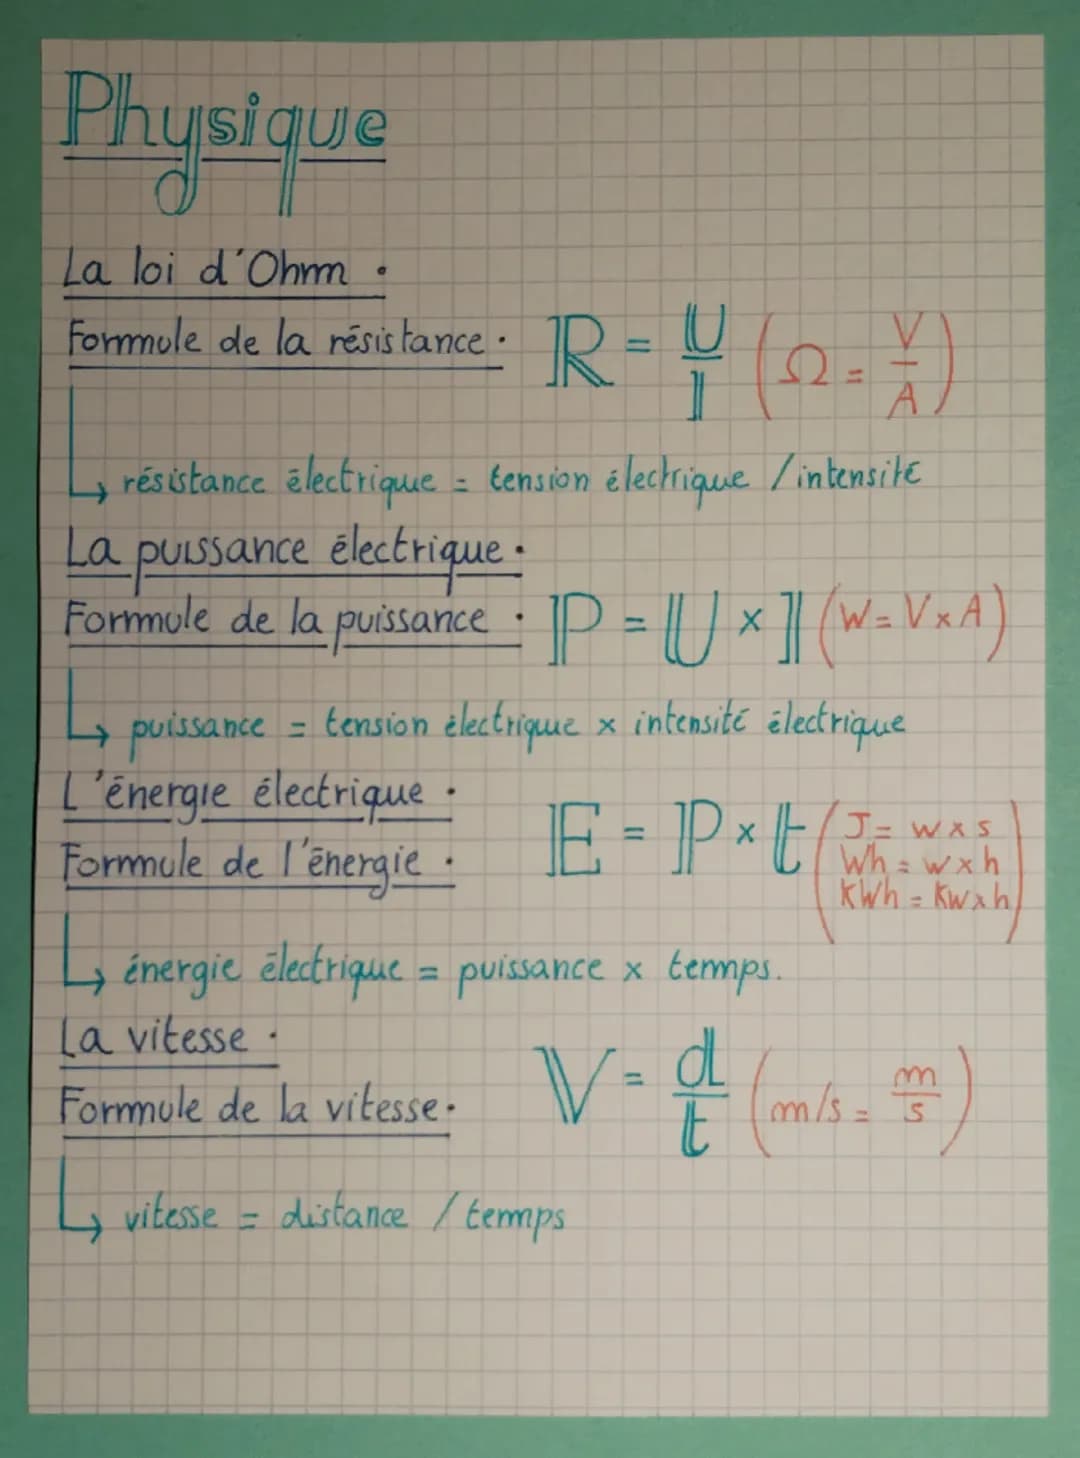 Physique
La loi d'Ohm.
Formule de la résistance. R = U/I (Ω = V/A)
↳ résistance électrique = tension électrique / intensité
La puissance électrique.
Formule de la puissance : P = U × I (W = V × A)
↳ puissance = tension électrique × intensité électrique
L'énergie électrique.
Formule de l'énergie. E = P × t (J = W × s
Wh = W × h
KWh = KW × h)
↳ énergie électrique = puissance × temps.
La vitesse.
Formule de la vitesse. V = d/t (m/s = m/s)
↳ vitesse = distance / temps